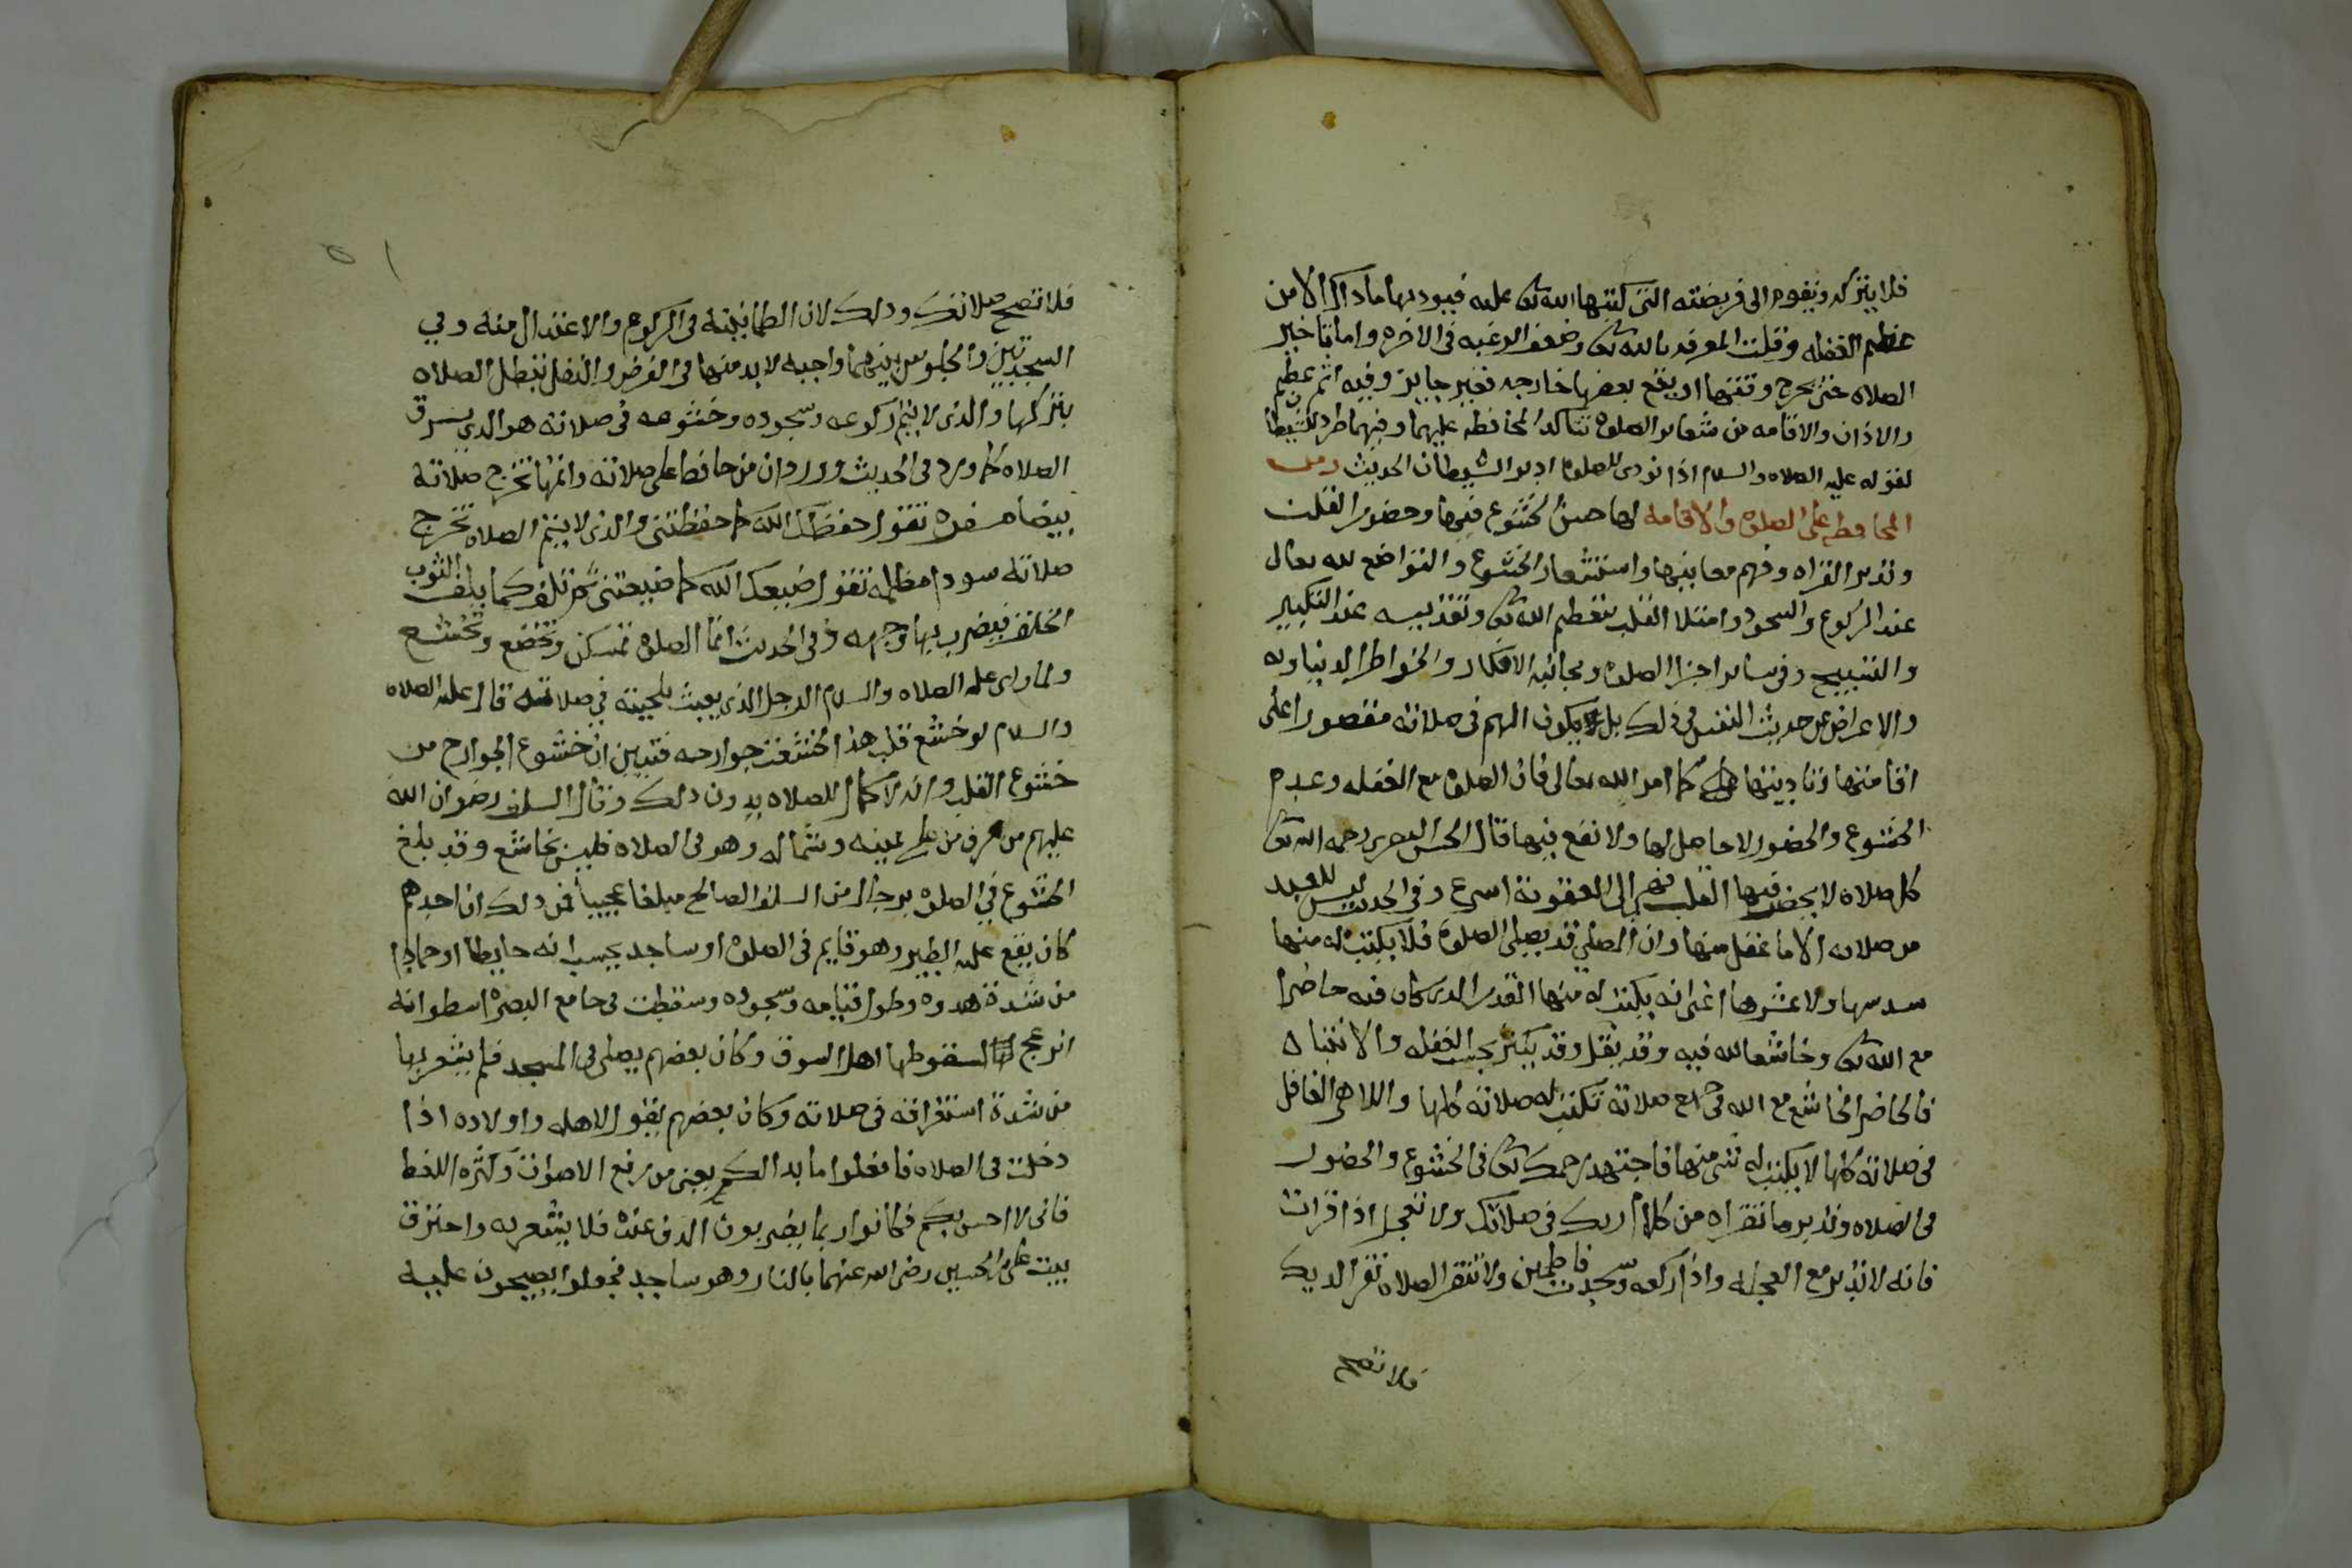 فلا يتركه ويقوم الى فريضته التى كتبها الله تعالى عليه فيوديها ماذاك الا من
عظم الغفله وقلت المعرفه بالله تعالى وضعف الرغبه فى الاخره واما تاخير
الصلاه حتى يخرج وقتها او يقع بعضها خارجه فغير جايز وفيه اثم عظيم
والاذان والاقامه من شعاير الصلوه تتاكد المحافظه عليهما وفيهما طرد للشيطان
لقوله عليه الصلاه والسلام اذا نودى للصلوه ادبر الشيطان الحديث ومن
المحافظه على الصلوه والاقامه لها حسن الخشوع فيها وحضور القلب
وتدبر القراه وفهم معانيها واستشعار الخشوع والتواضع لله تعالى
عند الركوع والسجود وامتلا القلب بتعظيم الله تعالى وتقديسه عند التكبير
والتسبيح وفى ساير اجزا الصلوه ومجانبه الافكار والخواطر الدنياويه
والاعراض عن حديث النفس فى ذلك بل يكون الهم فى صلاته مقصورا على
اقامتها وتاديتها كما امر الله تعالى فان الصلوه مع الغفله وعدم
الخشوع والحضور لا حاصل لها ولا نفع فيها قال الحسن البصرى رحمه الله تعالى
كل صلاه لا يحضر فيها القلب فهى الى العقوبة اسرع وفى الحديث ليس للعبد
من صلاته الا ما عقل منها وان المصلي قد يصلى الصلوة فلا يكتب له منها
سدسها ولا عشرها اعنى انه يكتب له منها القدر الذى كان فيه حاضرا
مع الله تعالى وخاشعا لله فيه وقد يقل وقد يكثر بحسب الغفله والانتباه
فالحاضر الخاشع مع الله فى جميع صلاته تكتب له صلاته كلها واللاهى الغافل
فى صلاته كلها لا يكتب له شى منها فاجتهد رحمك الله تعالى فى الخشوع والحضور
فى الصلاه وتدبر ما تقراه من كلام ربك فى صلاتك ولا تعجل اذا قرات
فانه لا تدبر مع العجله واذا ركعه وسجدت فاطمين ولا تنقر الصلاه نقر الديك
فلا تصح
٥١
فلا تصح صلاتك وذلك لان الطمانينة فى الركوع والاعتدال منه وفي
السجدتين والجلوس بينهما واجبه لابد منها فى الفرض والنفل تبطل الصلاه
بتركها والذى لا يتم ركوعه وسجوده وخشوعه فى صلاته هو الذى يسرق
الصلاه كما ورد فى الحديث وورد ان من حافظ على صلاته واتمها تخرج صلاتة
بيضاء مسفره تقول حفظك الله كما حفظتنى والذى لا يتم الصلاه تخرج
صلاته سودا مظلمه تقول ضيعك الله كما ضيعتنى ثم تلف كما يلف الثوب
الخلق فيضرب بها وجهه وفى الحديث انما الصلوه تمسكن وتخضع وتخشع
ولما راى عليه الصلاه والسلام الرجل الذى يعبث بلحيته في صلاته قال عليه الصلاه
والسلام لو خشع قلب هذا لخشعت جوارحه فتبين ان خشوع الجوارح من
خشوع القلب وانه لا كمال للصلاه بدون ذلك وقال السلف رضوان الله
عليهم من عرف من على يمينه وشماله وهو فى الصلاه فليس بخاشع وقد بلغ
الخشوع في الصلوه برجال من السلف الصالح مبلغا عجيبا فمن ذلك ان احدهم
كان يقع عليه الطير وهو قايم فى الصلوه او ساجد يحسب انه حايطا او جمادا
من شدة هدوه وطول قيامه وسجوده وسقطت فى جامع البصره اسطوانه
انزعج لسقوطها اهل السوق وكان بعضهم يصلى فى المسجد فلم يشعر بها
من شدة استغراقه فى صلاته وكان بعضهم يقول لاهله واولاده اذا
دخلت فى الصلاه فافعلوا ما بدا لكم يعنى من رفع الاصوات وكثره اللغط
فانى لا احس بكم فكانوا ربما يضربون الدف عنده فلا يشعر به واحترق
بيت على بن الحسين رضى الله عنهما بالنار وهو ساجد فجعلوا يصيحون عليه